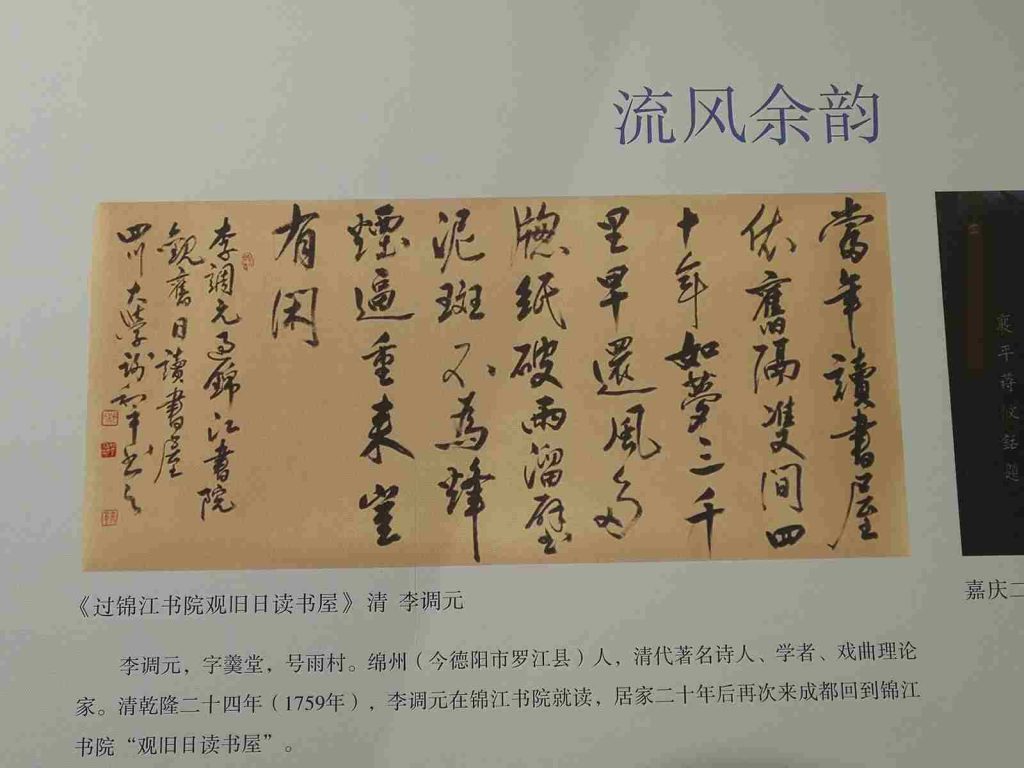 流风余韵
當年讀書屋
依舊隔雙间四
十年如夢三千
里早還風多
牕紙破雨溜壁
泥斑不為烽
煙逼重来豈
有闲
李調元過錦江书院
觀舊日讀書屋
四川大學謝和平书
《过锦江书院观旧日读书屋》清 李调元
李调元，字羹堂，号雨村。绵州（今德阳市罗江县）人，清代著名诗人、学者、戏曲理论
家。清乾隆二十四年（1759年），李调元在锦江书院就读，居家二十年后再次来成都回到锦江
书院“观旧日读书屋”。
襄平蒋攸铦題
嘉庆二